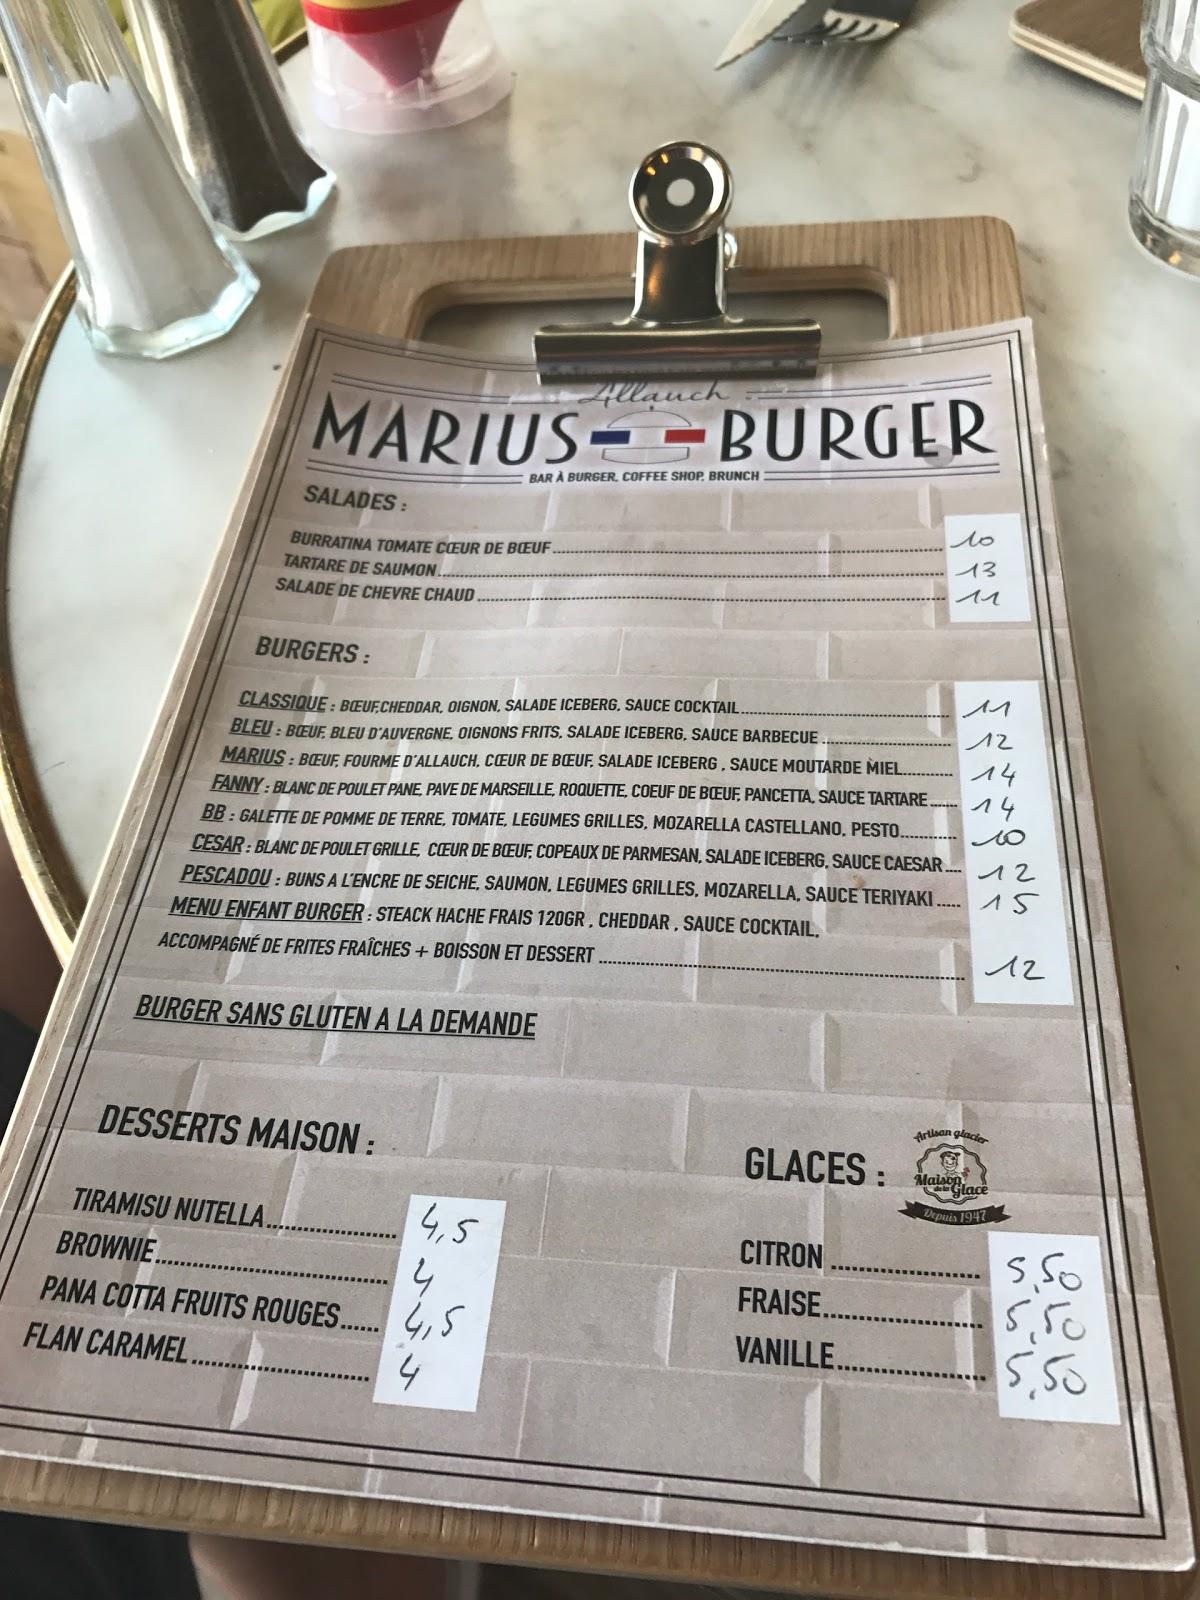 Allauch
MARIUS BURGER
BAR À BURGER, COFFEE SHOP, BRUNCH
SALADES :
BURRATINA TOMATE CŒUR DE BŒUF 10
TARTARE DE SAUMON 13
SALADE DE CHEVRE CHAUD 11
BURGERS :
CLASSIQUE : BŒUF,CHEDDAR, OIGNON, SALADE ICEBERG, SAUCE COCKTAIL 11
BLEU : BŒUF, BLEU D'AUVERGNE, OIGNONS FRITS, SALADE ICEBERG, SAUCE BARBECUE 12
MARIUS : BŒUF, FOURME D'ALLAUCH, CŒUR DE BŒUF, SALADE ICEBERG , SAUCE MOUTARDE MIEL 14
FANNY : BLANC DE POULET PANE, PAVE DE MARSEILLE, ROQUETTE, COEUF DE BŒUF, PANCETTA, SAUCE TARTARE 14
BB : GALETTE DE POMME DE TERRE, TOMATE, LEGUMES GRILLES, MOZARELLA CASTELLANO, PESTO 10
CESAR : BLANC DE POULET GRILLE, CŒUR DE BŒUF, COPEAUX DE PARMESAN, SALADE ICEBERG, SAUCE CAESAR 12
PESCADOU : BUNS A L'ENCRE DE SEICHE, SAUMON, LEGUMES GRILLES, MOZARELLA, SAUCE TERIYAKI 15
MENU ENFANT BURGER : STEACK HACHE FRAIS 120GR , CHEDDAR , SAUCE COCKTAIL,
ACCOMPAGNÉ DE FRITES FRAÎCHES + BOISSON ET DESSERT 12
BURGER SANS GLUTEN A LA DEMANDE
DESSERTS MAISON :
TIRAMISU NUTELLA 4,5
BROWNIE 4
PANA COTTA FRUITS ROUGES 4,5
FLAN CARAMEL 4
GLACES :
Artisan glacier
Maison
de la
Glace
Depuis 1947
CITRON 5,50
FRAISE 5,50
VANILLE 5,50